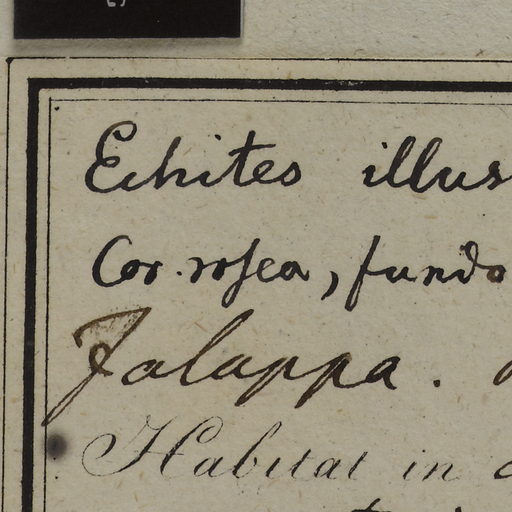 Echites illus
Cor. rosea, fundo
Jalappa.
Habitat in